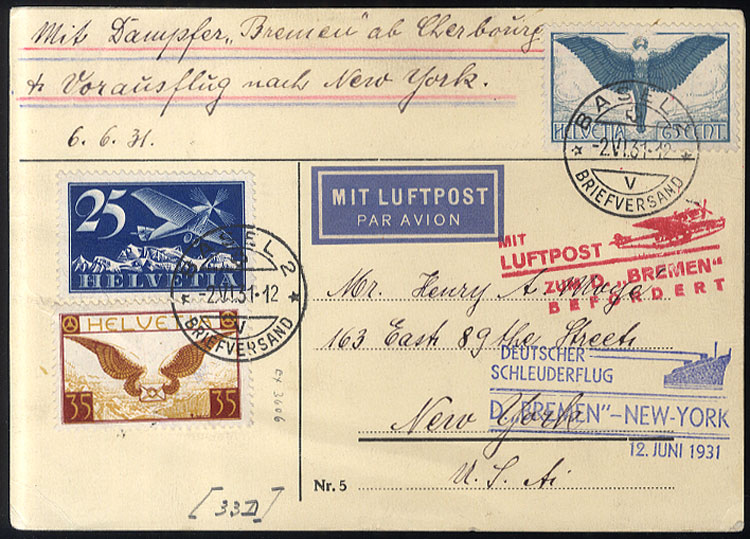 Mit Dampfer „Bremen" ab Cherbourg
& Vorausflug nach New York.
6. 6. 31.
HELVETIA 65 CENT.
BASEL 2
-2.VI.31-12
V
BRIEFVERSAND
25
HELVETIA
BASEL 2
-2.VI.31-12
V
BRIEFVERSAND
HELVETIA
35 35
MIT LUFTPOST
PAR AVION
MIT
LUFTPOST
ZUM D. „BREMEN"
BEFÖRDERT
Mr. Henry A.
163 East 89 the Street
New York
U. S. A.
DEUTSCHER
SCHLEUDERFLUG
D. „BREMEN" – NEW-YORK
12. JUNI 1931
Nr. 5